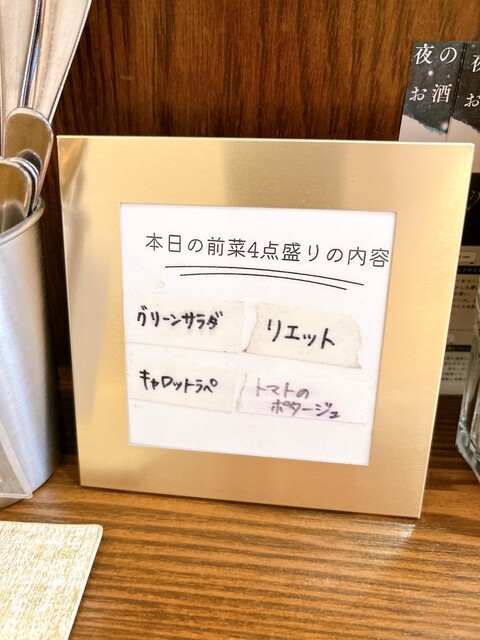 夜の
お酒
本日の前菜4点盛りの内容
グリーンサラダ
リエット
キャロットラペ
トマトの
ポタージュ